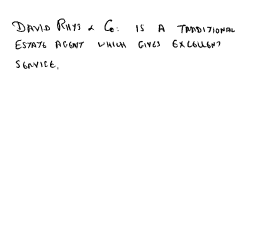 DAVID RHYS & Co: IS A TRADITIONAL
ESTATE AGENT WHICH GIVES EXCELLENT
SERVICE.